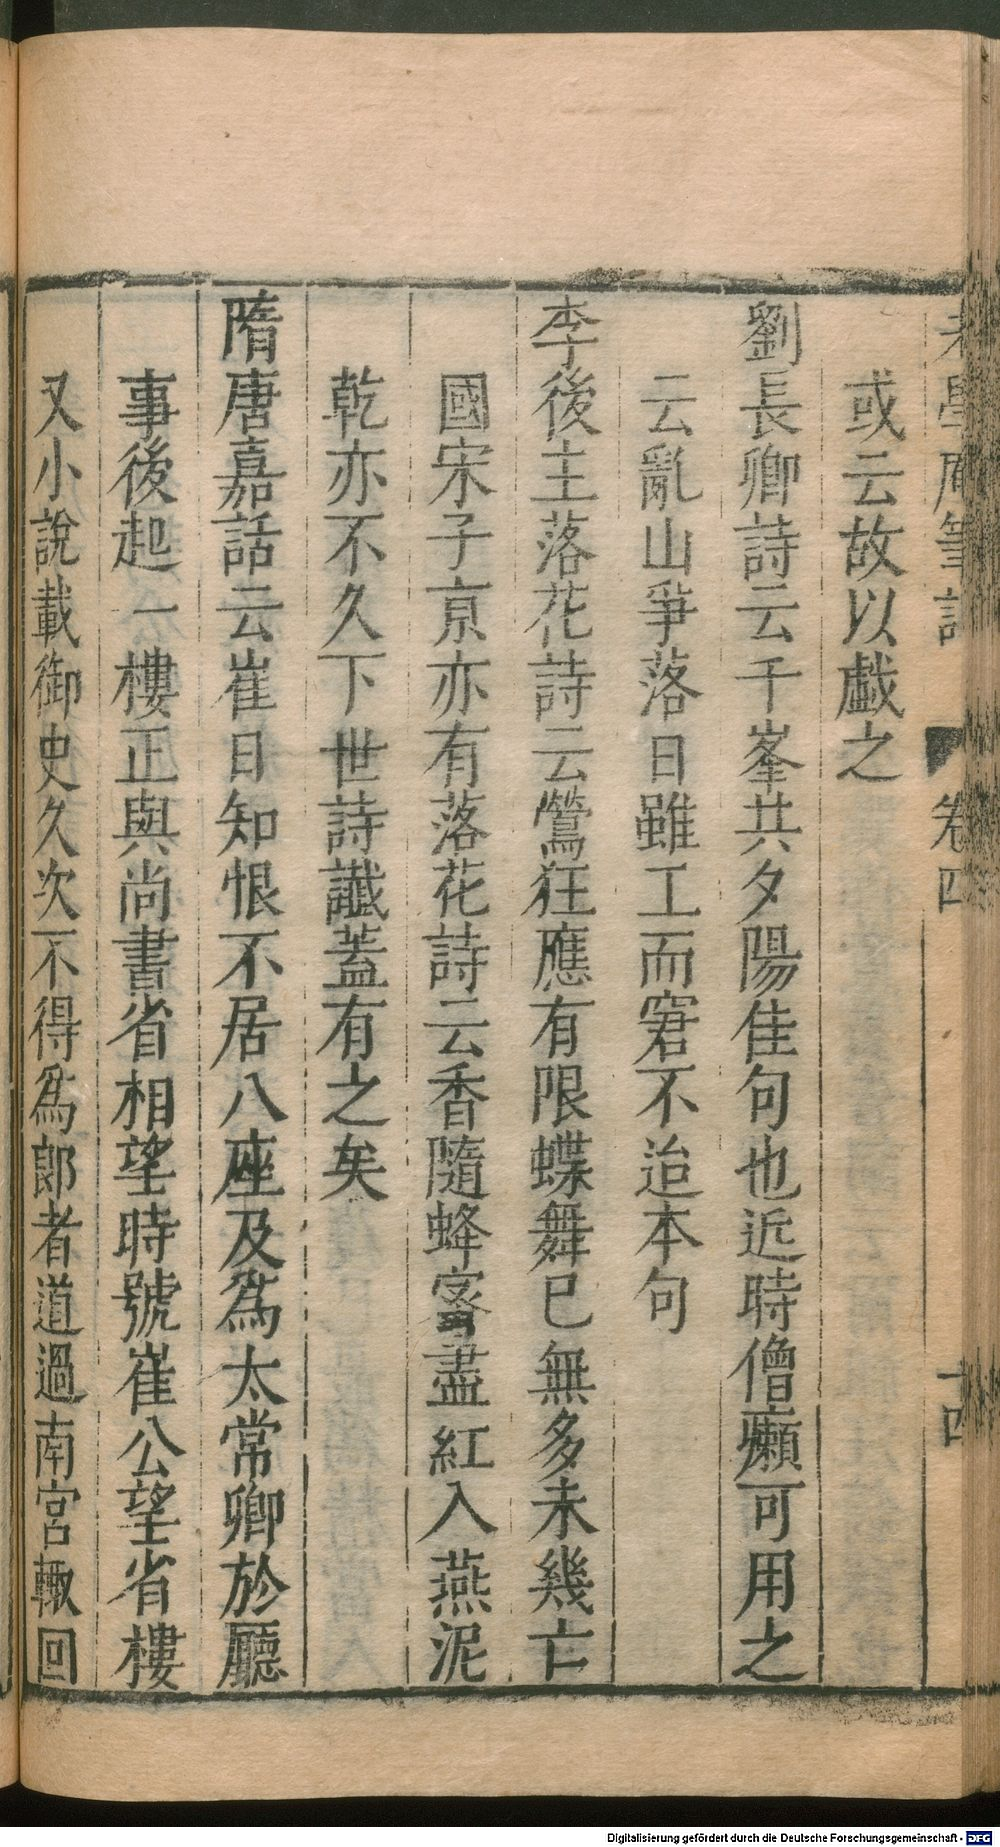 老學庵筆記 卷四 十四
或云故以戱之
劉長卿詩云千峯共夕陽佳句也近時僧癩可用之
云亂山爭落日雖工而窘不迨本句
李後主落花詩云鶯狂應有限蝶舞巳無多未幾亡
國宋子亰亦有落花詩云香隨蜂蜜盡紅入燕泥
乾亦不久下世詩讖蓋有之矣
隋唐嘉話云崔日知恨不居八座及爲太常卿於廳
事後起一樓正與尚書省相望時號崔公望省樓
又小說載御史久次不得爲郎者道過南宫輙回
Digitalisierung gefördert durch die Deutsche Forschungsgemeinschaft - DFG